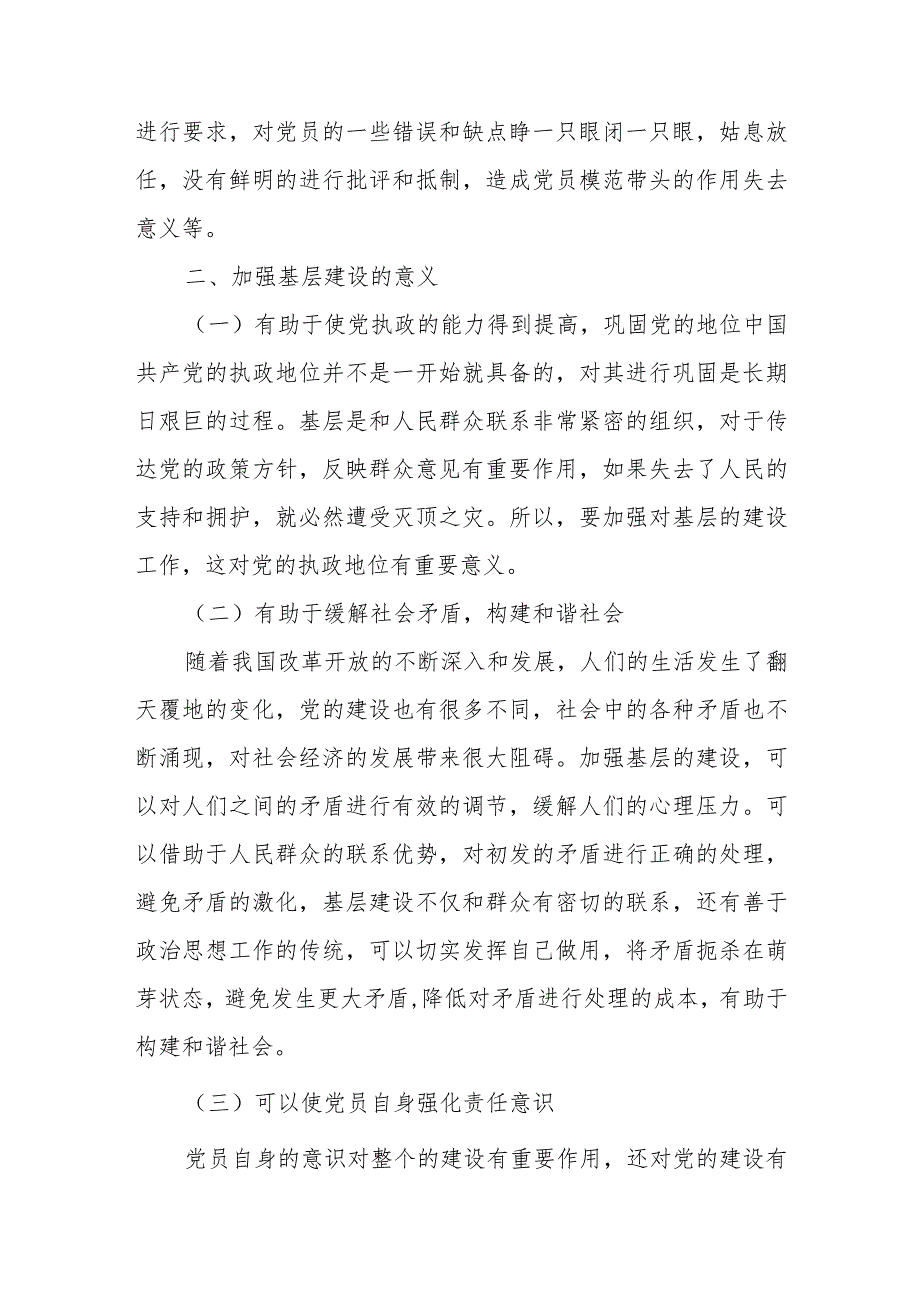 进行要求，对党员的一些错误和缺点睁一只眼闭一只眼，姑息放
任，没有鲜明的进行批评和抵制，造成党员模范带头的作用失去
意义等。
二、加强基层建设的意义
（一）有助于使党执政的能力得到提高，巩固党的地位中国
共产党的执政地位并不是一开始就具备的，对其进行巩固是长期
日艰巨的过程。基层是和人民群众联系非常紧密的组织，对于传
达党的政策方针，反映群众意见有重要作用，如果失去了人民的
支持和拥护，就必然遭受灭顶之灾。所以，要加强对基层的建设
工作，这对党的执政地位有重要意义。
（二）有助于缓解社会矛盾，构建和谐社会
随着我国改革开放的不断深入和发展，人们的生活发生了翻
天覆地的变化，党的建设也有很多不同，社会中的各种矛盾也不
断涌现，对社会经济的发展带来很大阻碍。加强基层的建设，可
以对人们之间的矛盾进行有效的调节，缓解人们的心理压力。可
以借助于人民群众的联系优势，对初发的矛盾进行正确的处理，
避免矛盾的激化，基层建设不仅和群众有密切的联系，还有善于
政治思想工作的传统，可以切实发挥自己做用，将矛盾扼杀在萌
芽状态，避免发生更大矛盾,降低对矛盾进行处理的成本，有助于
构建和谐社会。
（三）可以使党员自身强化责任意识
党员自身的意识对整个的建设有重要作用，还对党的建设有